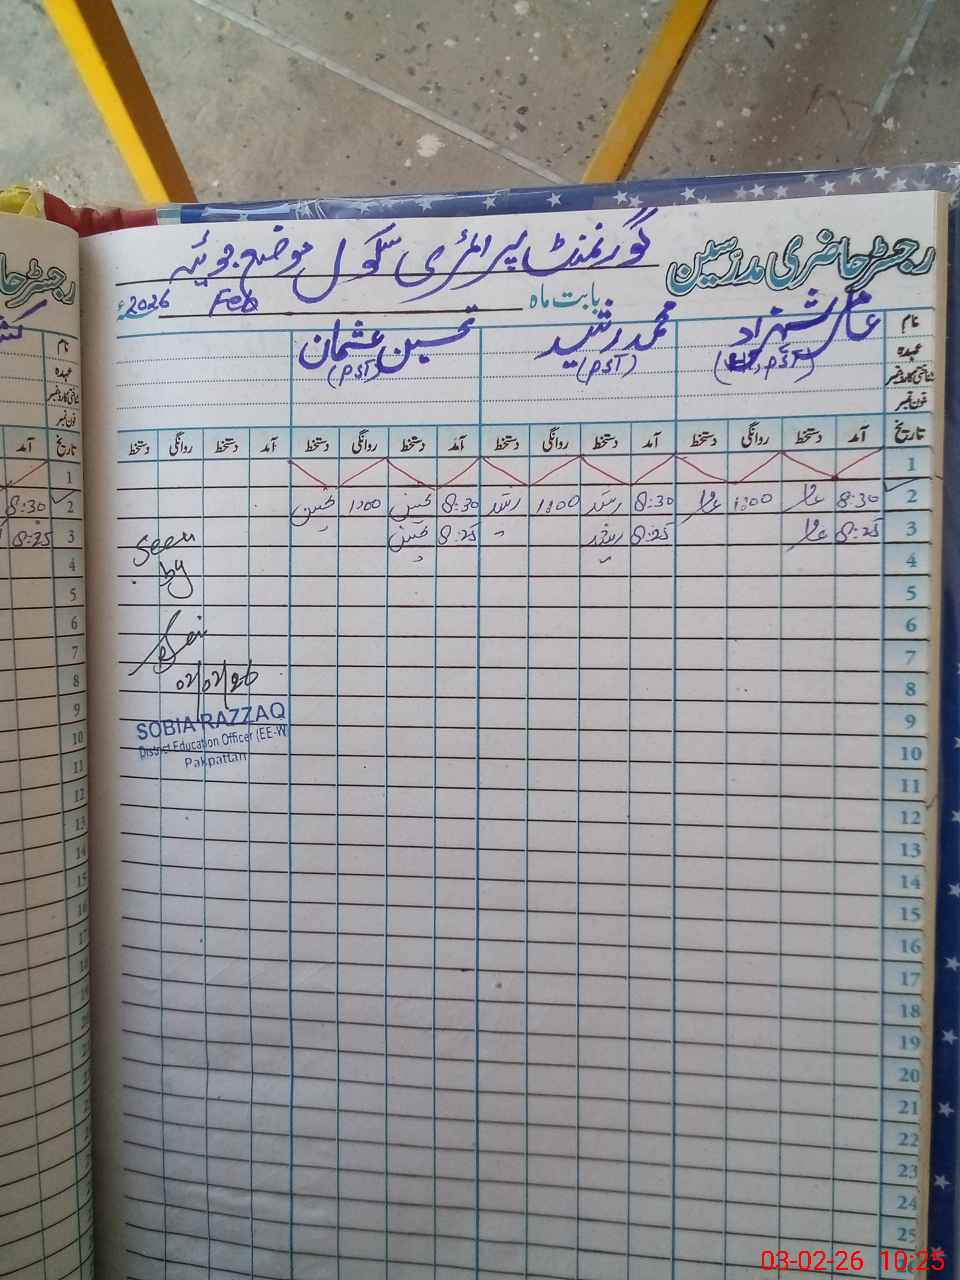 رجسٹر حاضری مدرسین گورنمنٹ پرائمری سکول موضع جوئیہ
بابت ماہ Feb 2026ء
نام عامر شہزاد محمد رشید تحسین عثمان
عہدہ (PST) (PST) (PST)
شناختی کارڈ نمبر
فون نمبر
تاریخ آمد دستخط روانگی دستخط آمد دستخط روانگی دستخط آمد دستخط روانگی دستخط آمد دستخط روانگی دستخط
1
2 8:30 1:00 8:30 رشید 1:00 رشید 8:30 تحسین 1:00 تحسین
3 8:25 8:25 رشید 8:25 تحسین
4
5
6
7
8
9
10
11
12
13
14
15
16
17
18
19
20
21
22
23
24
25
Seen
by
02/02/26
SOBIA RAZZAQ
District Education Officer (EE-W
Pakpattan
نام
عہدہ
شناختی کارڈ نمبر
فون نمبر
تاریخ آمد
1
2 8:30
3 8:25
4
5
6
7
8
9
10
11
12
13
14
15
16
17
18
03-02-26 10:25